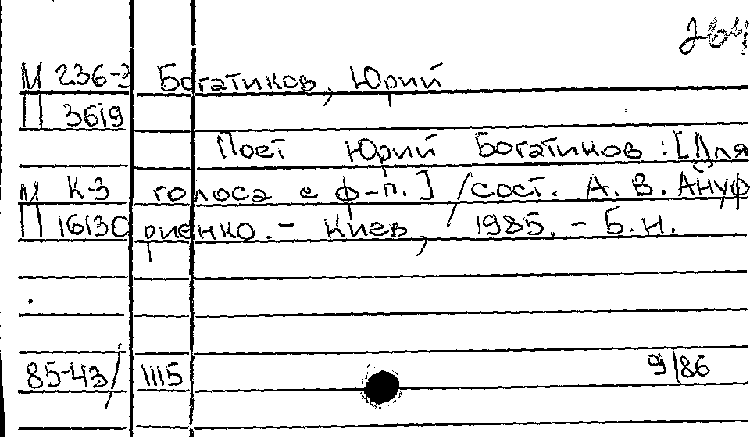 264
М 236-3 Богатиков, Юрий
П 3619
Поет Юрий Богатиков: [Для
М К-3 голоса с ф-п.] / сост. А. В. Ануф
П 16130 риенко. - Киев, 1985. - Б.н.
85-43/ 1115 9/86